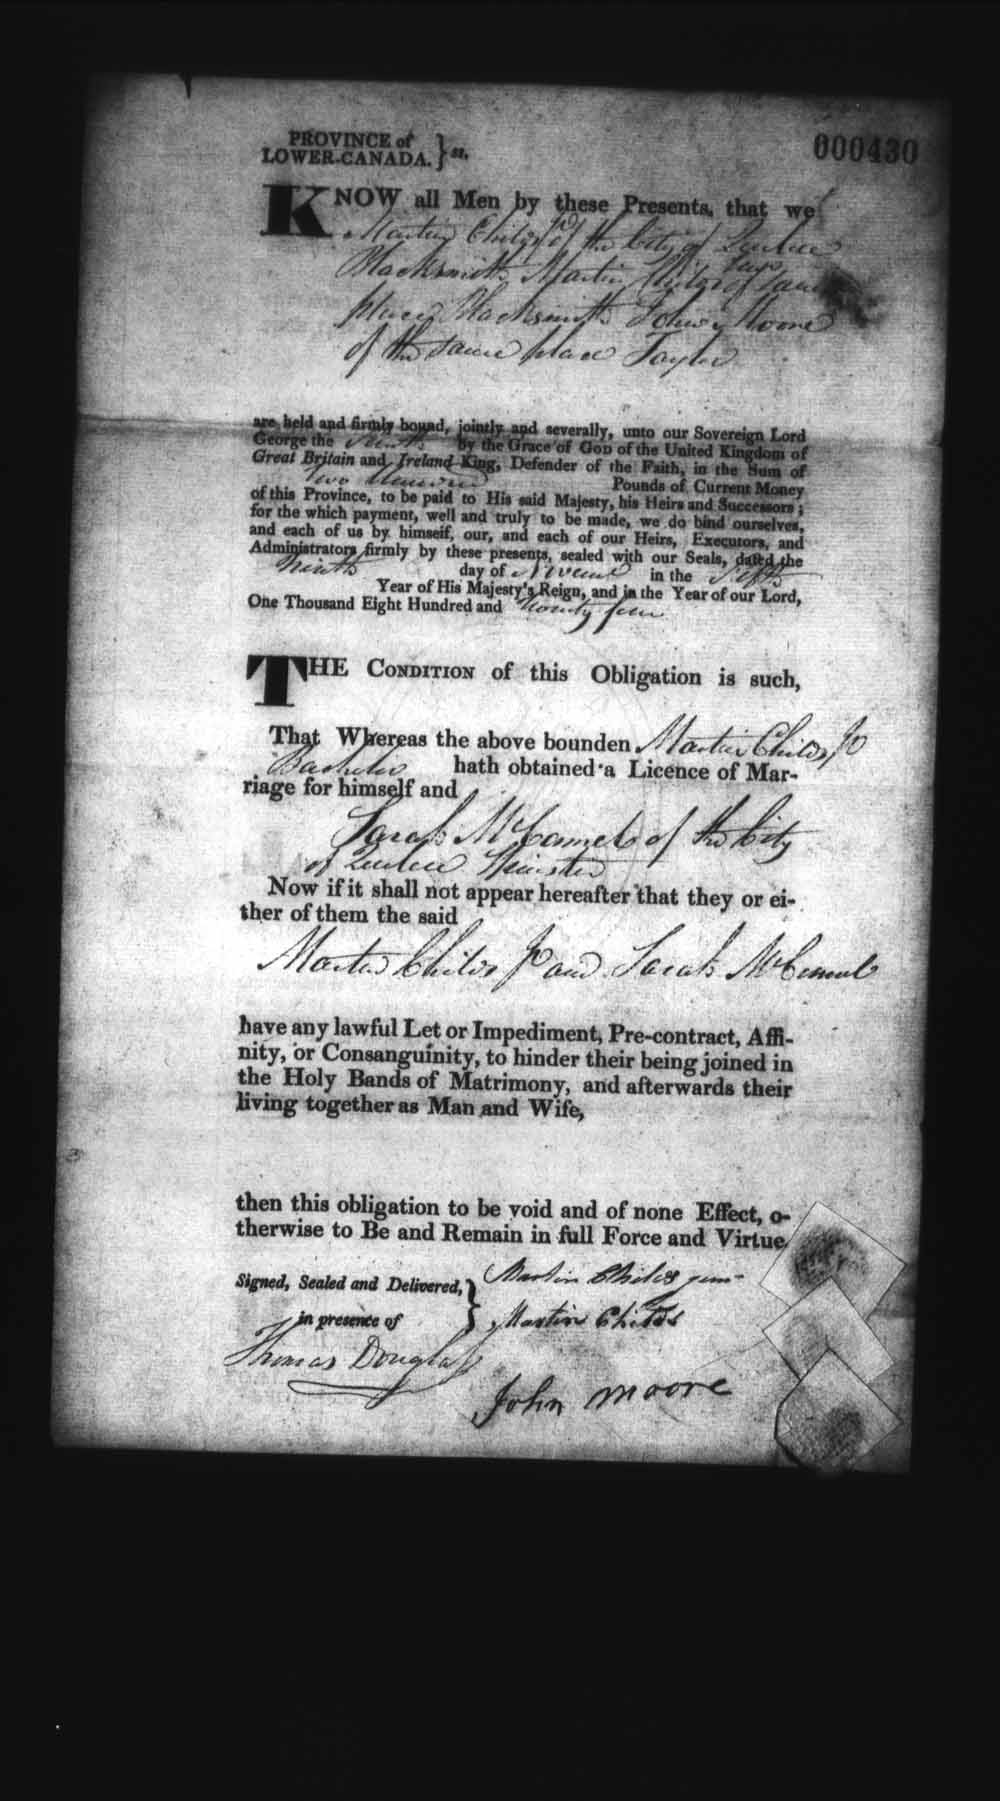 PROVINCE of
LOWER-CANADA. } ss.
000430
KNOW all Men by these Presents, that we
Martin Childs Jr of the City of Quebec
Blacksmith Martin Childs of same
place Blacksmith & John Moore
of the same place Taylor
are held and firmly bound, jointly and severally, unto our Sovereign Lord
George the Fourth by the Grace of God of the United Kingdom of
Great Britain and Ireland King, Defender of the Faith, in the Sum of
Two Hundred Pounds of Current Money
of this Province, to be paid to His said Majesty, his Heirs and Successors;
for the which payment, well and truly to be made, we do bind ourselves,
and each of us by himself, our, and each of our Heirs, Executors, and
Administrators firmly by these presents, sealed with our Seals, dated the
Ninth day of in the Fifth
Year of His Majesty's Reign, and in the Year of our Lord,
One Thousand Eight Hundred and Twenty four
THE CONDITION of this Obligation is such,
That Whereas the above bounden Martin Childs Jr
Bachelor hath obtained a Licence of Mar-
riage for himself and
Sarah McConnel of the City
of Quebec Spinster
Now if it shall not appear hereafter that they or ei-
ther of them the said
Martin Childs Jr and Sarah McConnel
have any lawful Let or Impediment, Pre-contract, Affi-
nity, or Consanguinity, to hinder their being joined in
the Holy Bands of Matrimony, and afterwards their
living together as Man and Wife,
then this obligation to be void and of none Effect, o-
therwise to Be and Remain in full Force and Virtue.
Signed, Sealed and Delivered, } Martin Childs jun-
in presence of Martin Childs
Thomas Douglas
John Moore